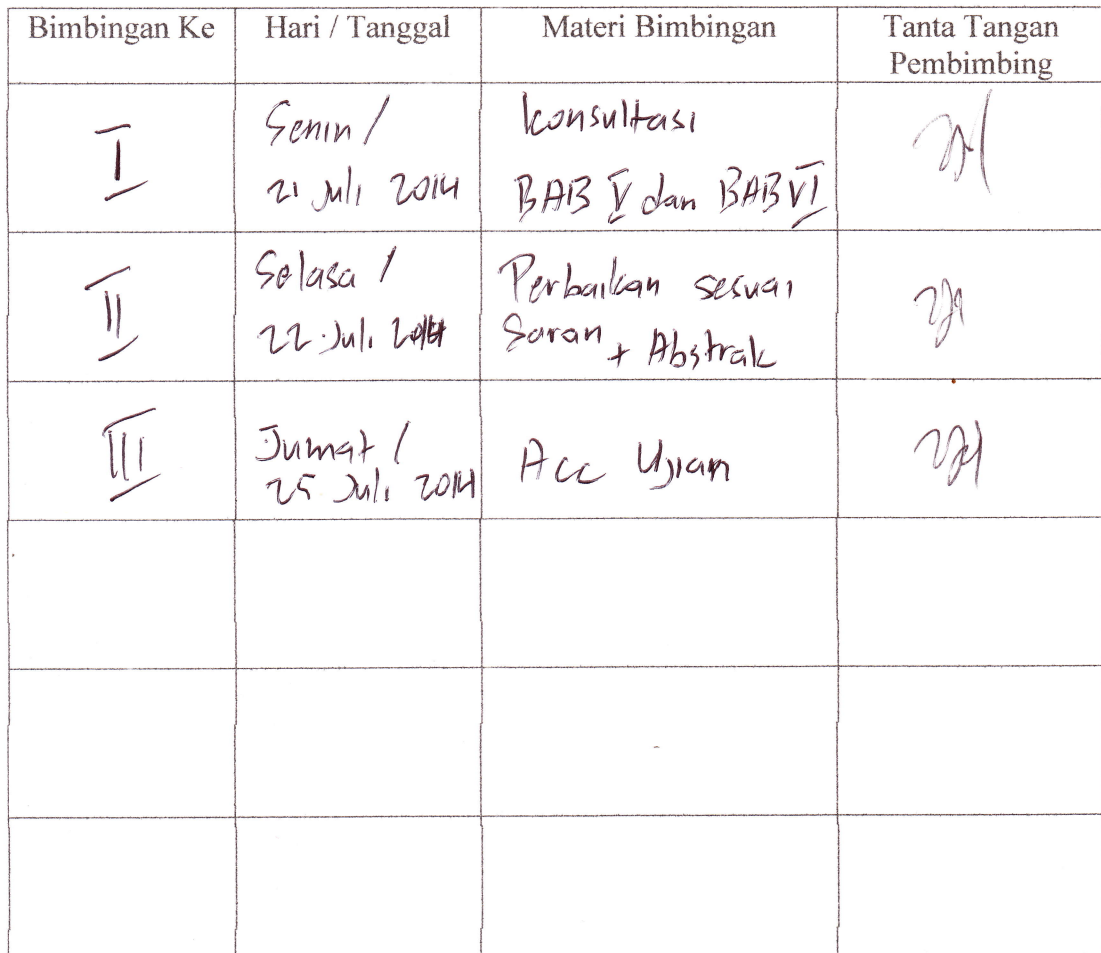 Bimbingan Ke
Hari / Tanggal
Materi Bimbingan
Tanta Tangan
Pembimbing
I
Senin /
21 Juli 2014
konsultasi
BAB V dan BAB VI
II
Selasa /
22 Juli 2014
Perbaikan sesuai
Saran + Abstrak
III
Jumat /
25 Juli 2014
Acc Ujian